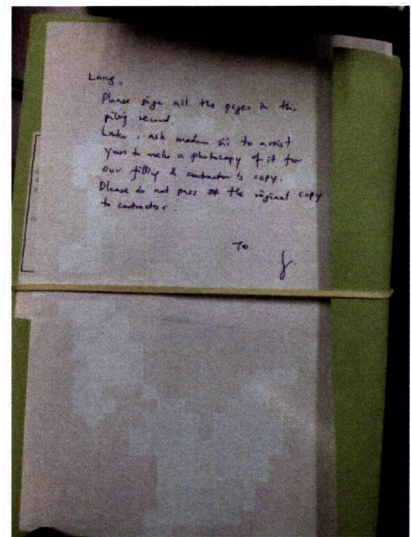 Lang,
Please sign all the pages in this
piling record.
Later, ask madam sis to assist
you to make a photocopy of it for
our filing & contractor's copy.
Please do not pass the original copy
to contractor.
To